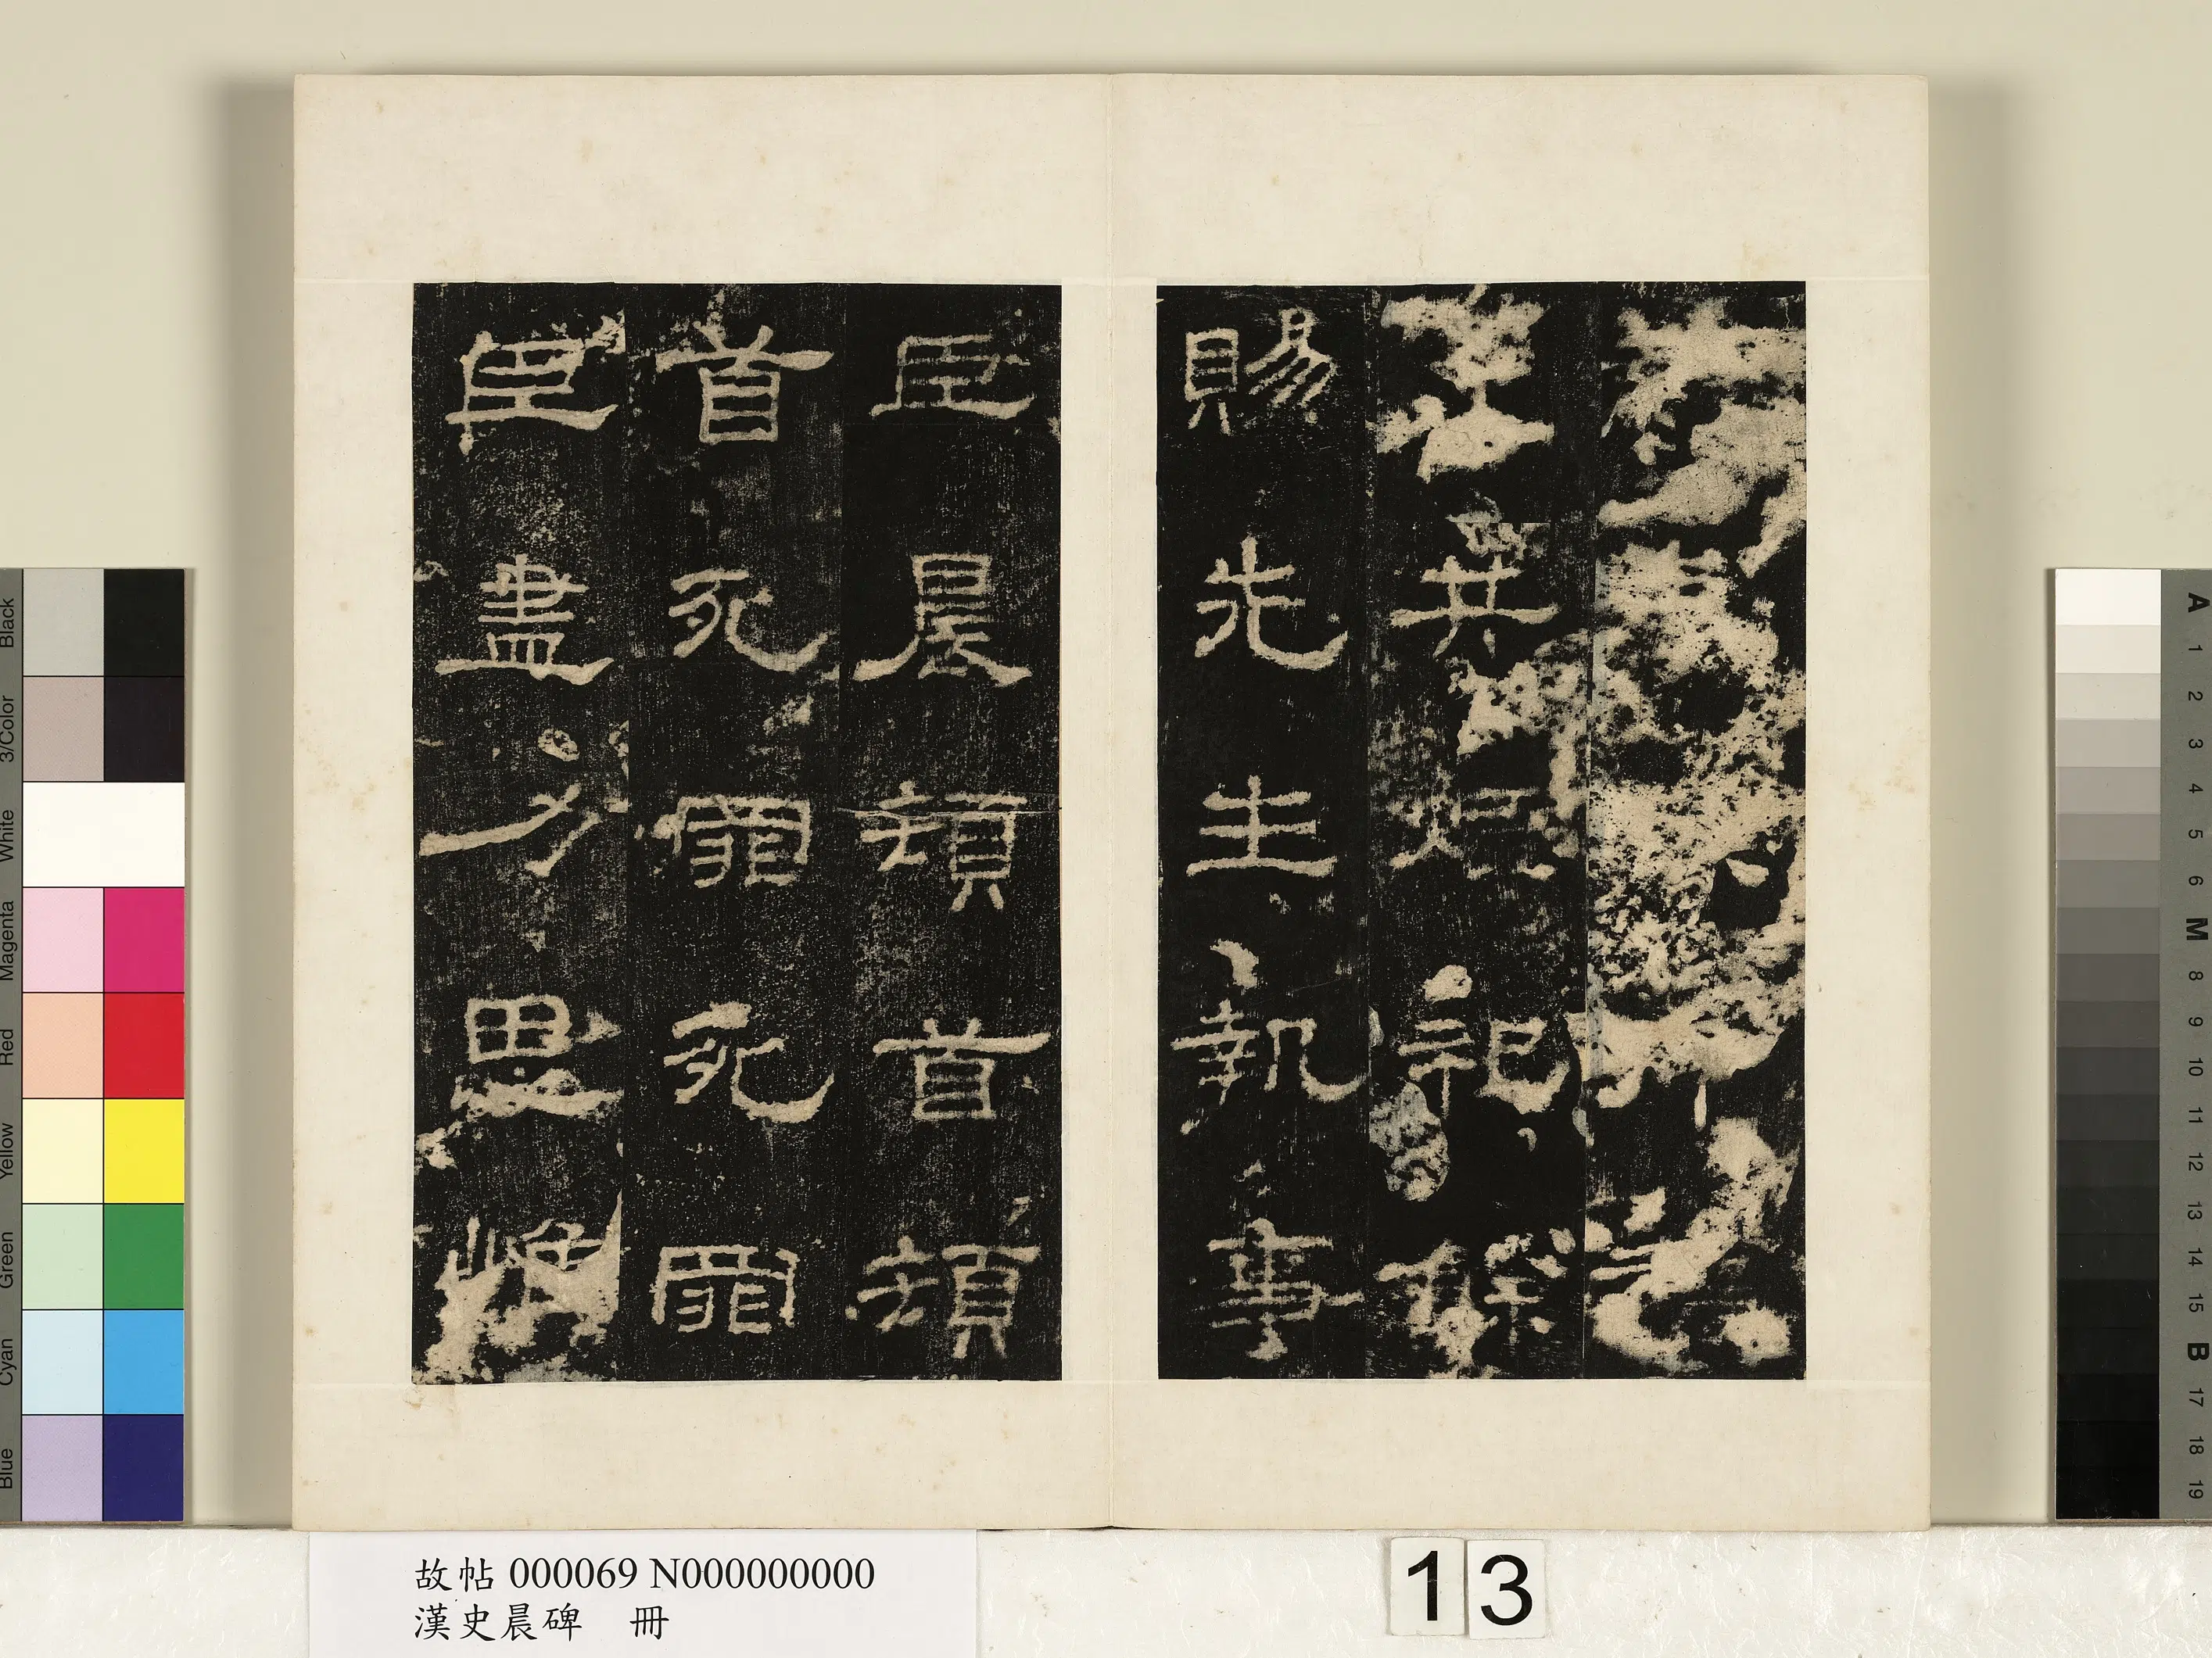 共煙祀餘
賜先生執事
臣晨頓首頓
首死罪死罪
臣盡力思惟
故帖 000069 N000000000
漢史晨碑 冊
13
Black
3/Color
White
Magenta
Red
Yellow
Green
Cyan
Blue
A 1 2 3 4 5 6 M 8 9 10 11 12 13 14 15 B 17 18 19